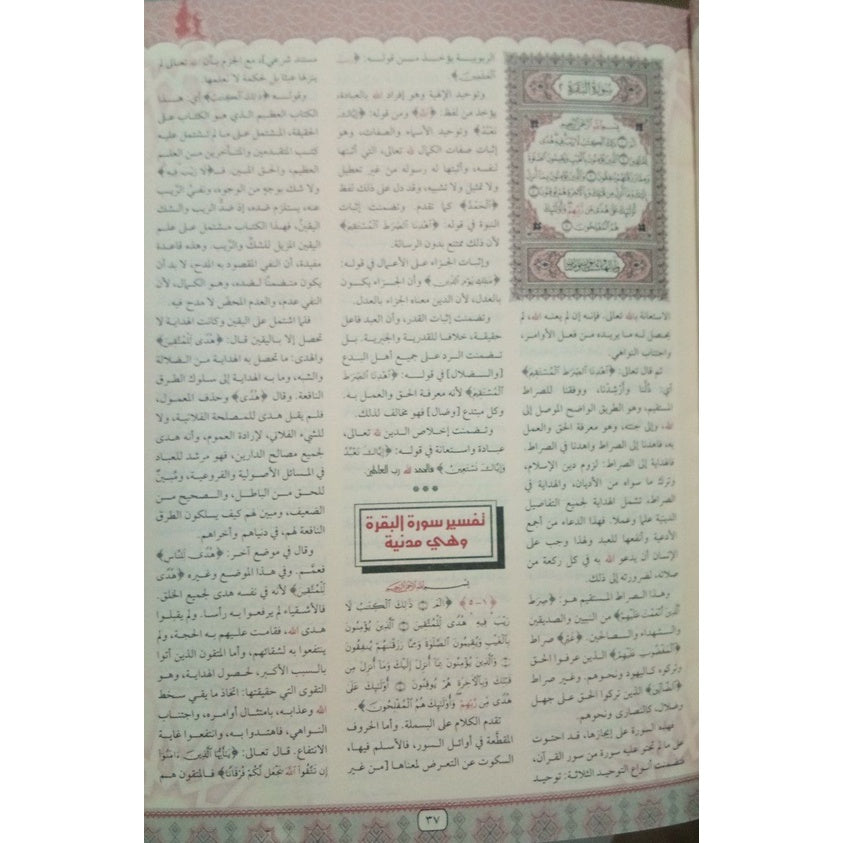 سورة البقرة ٢
الاستعانة بالله تعالى. فإنه إن لم يعنه الله، لم
يحصل له ما يريده من فعل الأوامر،
واجتناب النواهي.
ثم قال تعالى: ﴿آهْدِنَا ٱلصِّرَٰطَ ٱلْمُسْتَقِيمَ﴾
أي: دُلَّنا وأَرْشِدْنا، ووفقنا للصراط
المستقيم، وهو الطريق الواضح الموصل إلى
الله، وإلى جنته، وهو معرفة الحق والعمل
به، فاهدنا إلى الصراط واهدنا في الصراط.
فالهداية إلى الصراط: لزوم دين الإسلام،
وترك ما سواه من الأديان، والهداية في
الصراط، تشمل الهداية لجميع التفاصيل
الدينية علما وعملا. فهذا الدعاء من أجمع
الأدعية وأنفعها للعبد ولهذا وجب على
الإنسان أن يدعو الله به في كل ركعة من
صلاته، لضرورته إلى ذلك.
وهذا الصراط المستقيم هو: ﴿صِرَٰطَ
ٱلَّذِينَ أَنْعَمْتَ عَلَيْهِمْ﴾ من النبيين والصديقين
والشهداء والصالحين. ﴿غَيْرِ﴾ صراط
﴿ٱلْمَغْضُوبِ عَلَيْهِمْ﴾ الذين عرفوا الحق
وتركوه كاليهود ونحوهم. وغير صراط
﴿ٱلضَّآلِّينَ﴾ الذين تركوا الحق على جهل
وضلال، كالنصارى ونحوهم.
فهذه السورة على إيجازها، قد احتوت
على ما لم تحتو عليه سورة من سور القرآن،
فتضمنت أنواع التوحيد الثلاثة: توحيد
الربوبية يؤخذ من قوله: ﴿رَبِّ
ٱلْعَٰلَمِينَ﴾.
وتوحيد الإلهية وهو إفراد الله بالعبادة،
يؤخذ من لفظ: ﴿لله﴾ ومن قوله: ﴿إِيَّاكَ
نَعْبُدُ﴾ وتوحيد الأسماء والصفات، وهو
إثبات صفات الكمال لله تعالى، التي أثبتها
لنفسه، وأثبتها له رسوله من غير تعطيل
ولا تمثيل ولا تشبيه، وقد دل على ذلك لفظ
﴿ٱلْحَمْدُ﴾ كما تقدم. وتضمنت إثبات
النبوة في قوله: ﴿ٱهْدِنَا ٱلصِّرَٰطَ ٱلْمُسْتَقِيمَ﴾
لأن ذلك ممتنع بدون الرسالة.
وإثبات الجزاء على الأعمال في قوله:
﴿مَٰلِكِ يَوْمِ ٱلدِّينِ﴾ وأن الجزاء يكون
بالعدل، لأن الدين معناه الجزاء بالعدل.
وتضمنت إثبات القدر، وأن العبد فاعل
حقيقة، خلافا للقدرية والجبرية. بل
تضمنت الرد على جميع أهل البدع
[والضلال] في قوله: ﴿ٱهْدِنَا ٱلصِّرَٰطَ
ٱلْمُسْتَقِيمَ﴾ لأنه معرفة الحق والعمل به.
وكل مبتدع [وضال] فهو مخالف لذلك.
وتضمنت إخلاص الدين لله تعالى،
عبادة واستعانة في قوله: ﴿إِيَّاكَ نَعْبُدُ
وَإِيَّاكَ نَسْتَعِينُ﴾ فالحمد لله رب العالمين.
تفسير سورة البقرة
وهي مدنية
بسم الله الرحمن الرحيم
﴿١-٥﴾ ﴿الٓمٓ ۝ ذَٰلِكَ ٱلْكِتَٰبُ لَا
رَيْبَ فِيهِ هُدًى لِّلْمُتَّقِينَ ۝ ٱلَّذِينَ يُؤْمِنُونَ
بِٱلْغَيْبِ وَيُقِيمُونَ ٱلصَّلَوٰةَ وَمِمَّا رَزَقْنَٰهُمْ يُنفِقُونَ
۝ وَٱلَّذِينَ يُؤْمِنُونَ بِمَآ أُنزِلَ إِلَيْكَ وَمَآ أُنزِلَ مِن
قَبْلِكَ وَبِٱلْأٓخِرَةِ هُمْ يُوقِنُونَ ۝ أُوْلَٰٓئِكَ عَلَىٰ
هُدًى مِّن رَّبِّهِمْ وَأُوْلَٰٓئِكَ هُمُ ٱلْمُفْلِحُونَ﴾.
تقدم الكلام على البسملة. وأما الحروف
المقطَّعة في أوائل السور، فالأسلم فيها،
السكوت عن التعرض لمعناها [من غير
مستند شرعي]، مع الجزم بأن الله تعالى لم
ينزلها عبثا بل لحكمة لا نعلمها.
وقوله ﴿ذَٰلِكَ ٱلْكِتَٰبُ﴾ أي: هذا
الكتاب العظيم الذي هو الكتاب على
الحقيقة، المشتمل على ما لم تشتمل عليه
كتب المتقدمين والمتأخرين من العلم
العظيم، والحق المبين. فـ﴿لَا رَيْبَ فِيهِ﴾
ولا شك بوجه من الوجوه، ونفيُ الرَّيب
عنه، يستلزم ضده، إذ ضدُّ الريب والشك
اليقينُ، فهذا الكتاب مشتمل على علم
اليقين المزيل للشكِّ والرَّيب. وهذه قاعدة
مفيدة، أن النفي المقصود به المدح، لا بد أن
يكون متضمنًا لضده، وهو الكمال، لأن
النفي عدم، والعدم المحض لا مدح فيه.
فلما اشتمل على اليقين وكانت الهداية لا
تحصل إلا باليقين قال: ﴿هُدًى لِّلْمُتَّقِينَ﴾
والهدى: ما تحصل به الهداية من الضلالة
والشبه، وما به الهداية إلى سلوك الطرق
النافعة. وقال ﴿هُدًى﴾ وحذف المعمول،
فلم يقل هدى للمصلحة الفلانية، ولا
للشيء الفلاني، لإرادة العموم، وأنه هدى
لجميع مصالح الدارين، فهو مرشد للعباد
في المسائل الأصولية والفروعية، ومُبَيِّنٌ
للحق من الباطل، والصحيح من
الضعيف، ومبين لهم كيف يسلكون الطرق
النافعة لهم، في دنياهم وأخراهم.
وقال في موضع آخر: ﴿هُدًى لِّلنَّاسِ﴾
فعمَّم. وفي هذا الموضع وغيره ﴿هُدًى
لِّلْمُتَّقِينَ﴾ لأنه في نفسه هدى لجميع الخلق.
فالأشقياء لم يرفعوا به رأسا. ولم يقبلوا
هدى الله، فقامت عليهم به الحجة، ولم
ينتفعوا به لشقائهم، وأما المتقون الذين أتوا
بالسبب الأكبر، لحصول الهداية، وهو
التقوى التي حقيقتها: اتخاذ ما يقي سخط
الله وعذابه، بامتثال أوامره، واجتناب
النواهي، فاهتدوا به، وانتفعوا غاية
الانتفاع. قال تعالى: ﴿يَٰٓأَيُّهَا ٱلَّذِينَ ءَامَنُوٓاْ
إِن تَتَّقُواْ ٱللَّهَ يَجْعَل لَّكُمْ فُرْقَانًا﴾ فالمتقون هم
٣٧